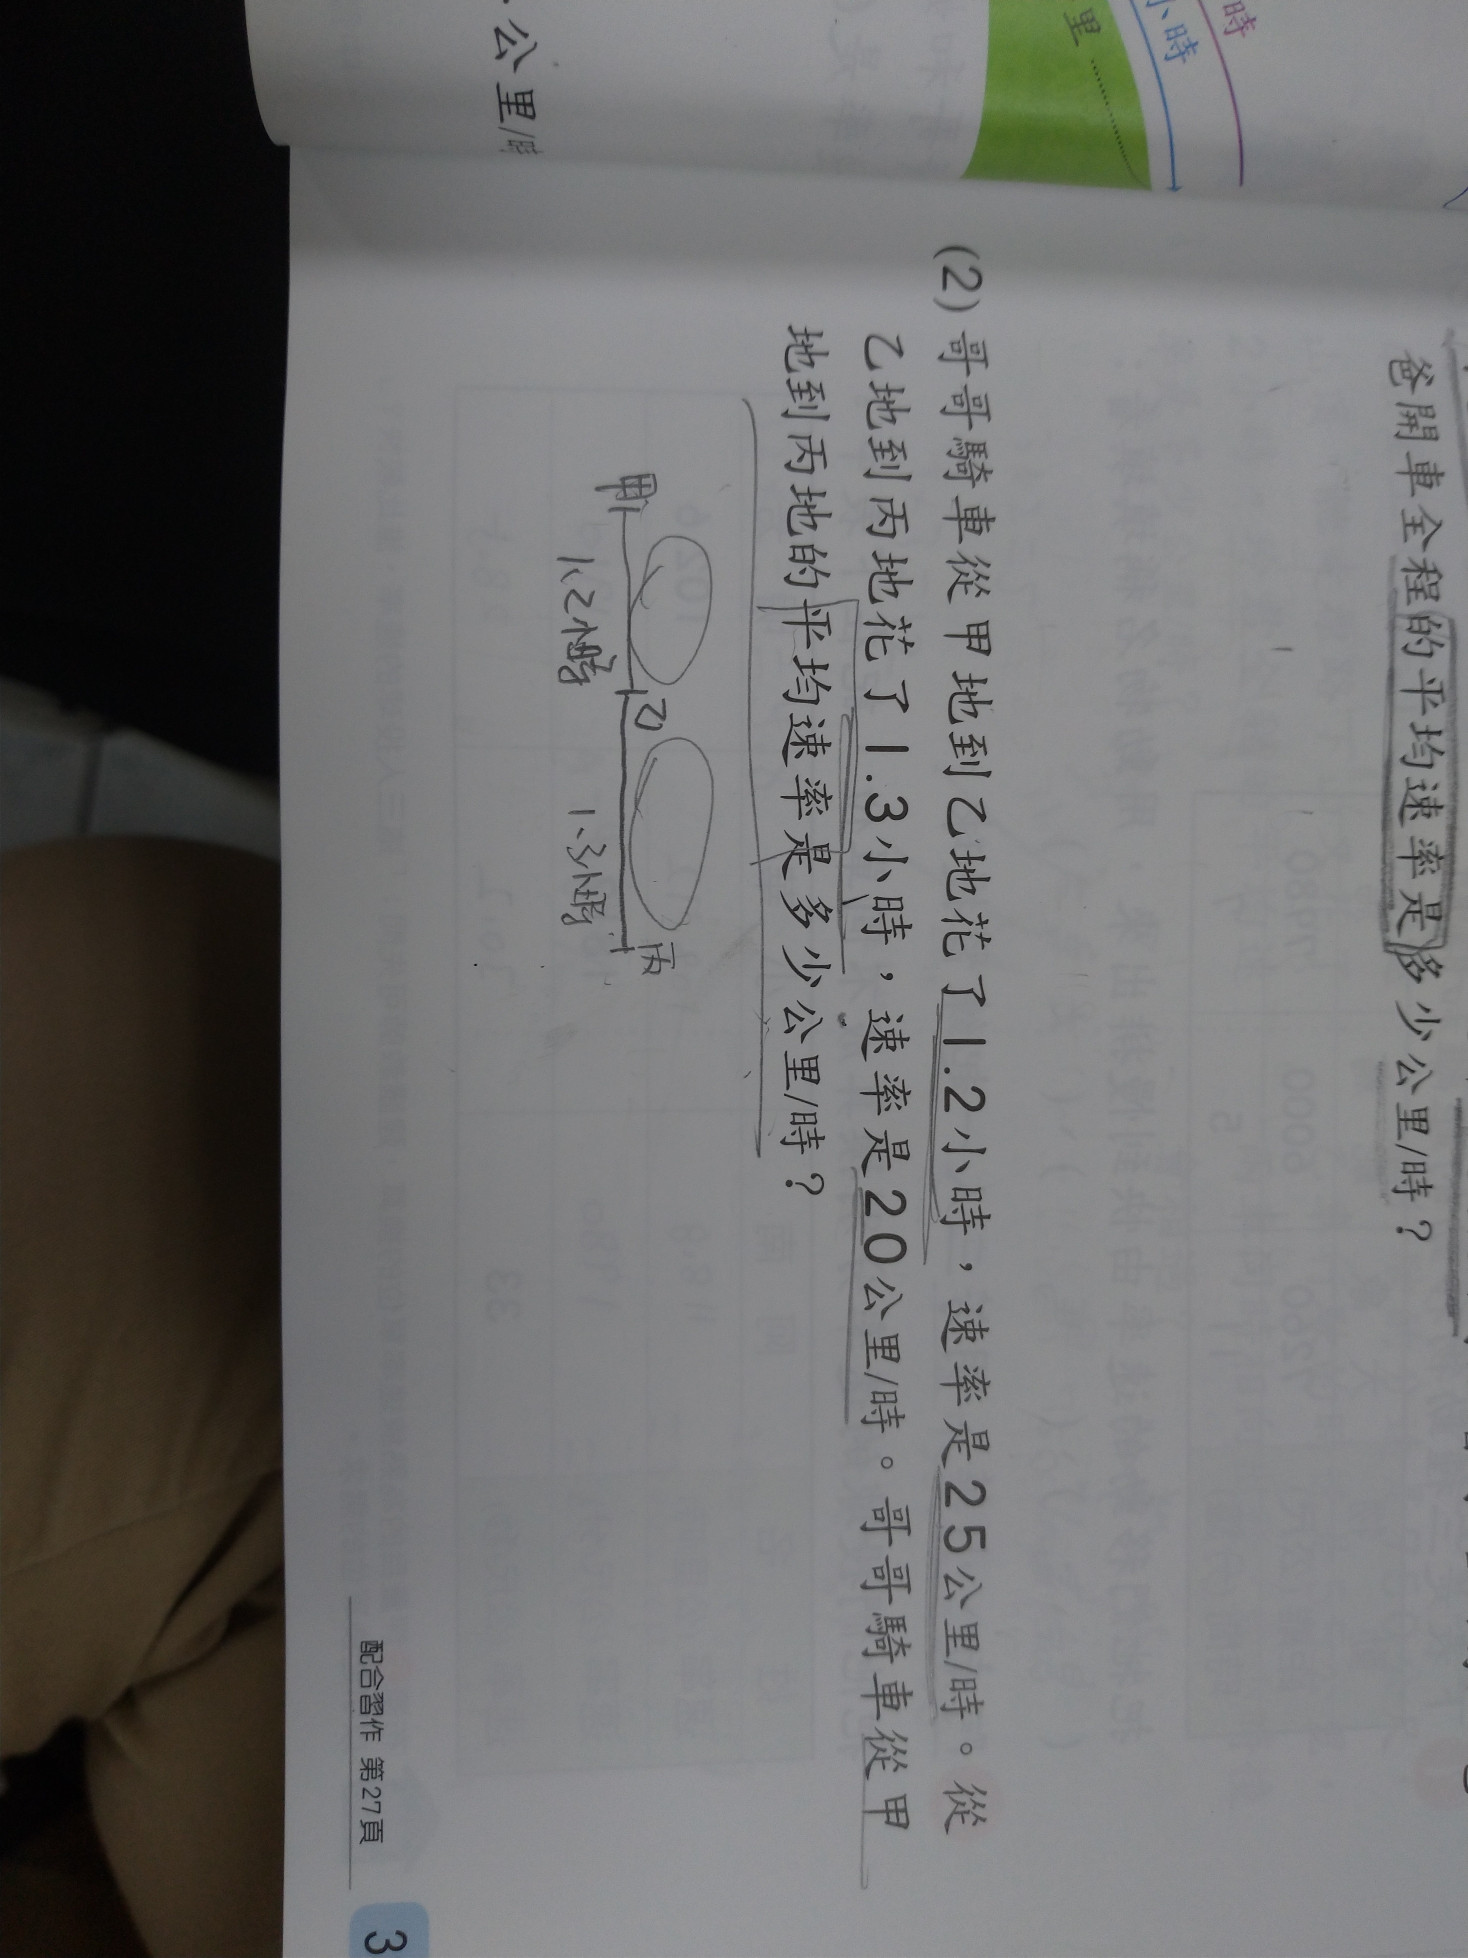 時
小時
里
爸開車全程的平均速率是多少公里/時？
(2) 哥哥騎車從甲地到乙地花了1.2小時，速率是25公里/時。從
乙地到丙地花了1.3小時，速率是20公里/時。哥哥騎車從甲
地到丙地的平均速率是多少公里/時？
甲 乙 丙
1.2小時 1.3小時
公里/時
配合習作 第27頁
3